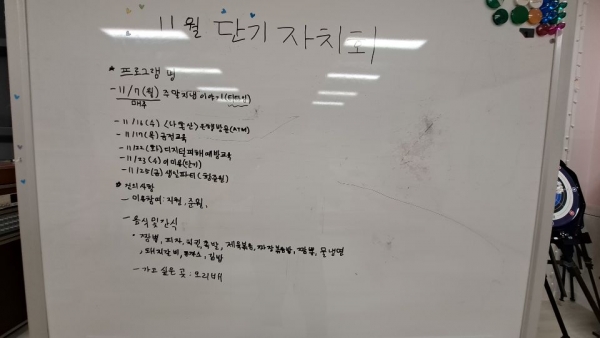 11월 단기 자치회
* 프로그램 명
- 11/7(월) 주말지낸 이야기(단기)
매주
- 11/16(수) <나눔산> 은행방문(ATM)
- 11/17(목) 금전교육
- 11/22(화) 디지털피해예방교육
- 11/23(수) 이미용(단기)
- 11/25(금) 생일파티(
* 건의사항
- 이용참여: 지원, 준원,
- 음식 및 간식
• 짬뽕, 피자, 치킨, 족발, 제육볶음, 짜장볶음밥, 짬뽕, 물냉면
, 돼지갈비, 돈까스, 김밥
- 가고 싶은 곳: 오리배